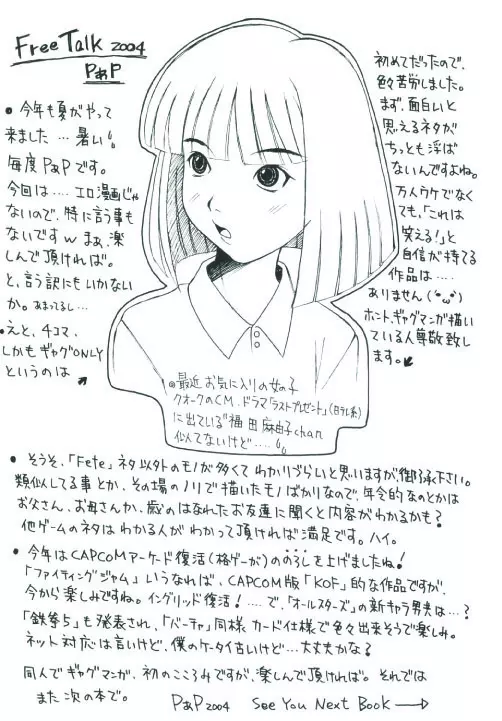 Free Talk 2004
PあP
● 今年も夏がやって
来ました … 暑い
毎度PあPです。
今回は‥‥エロ漫画じゃ
ないので、特に言う事も
ないですｗ まぁ、楽
しんで頂ければ。
と、言う訳にもいかない
か。あまってるし…
●えと、4コマ、
しかもギャグONLY
というのは
初めてだったので、
色々苦労しました。
まず、面白いと
思えるネタが
ちっとも浮ば
ないんですよね。
万人ウケでなく
ても、「これは
笑える！」と
自信が持てる
作品は‥‥
ありません(´・ω・`)
ホント、ギャグマンガ描い
ている人尊敬致し
ます。
◎最近お気に入りの女の子
クオークのCM、ドラマ「ラストプレゼント」(日テレ系)
に出ている"福田麻由子chan
似てないけど‥‥
● そうそ、「Fete」ネタ以外のモノが多くてわかりづらいと思いますが、御了承下さい。
類似してる事とか、その場のノリで描いたモノばかりなので、年令的なのとかは
お父さん、お母さんか、歳のはなれたお友達に聞くと内容がわかるかも？
他ゲームのネタはわかる人がわかって頂ければ満足です。ハイ。
● 今年はCAPCOMアーケード復活(格ゲーが)ののろしを上げましたね！
「ファイティングジャム」いうなれば、CAPCOM版「KOF」的な作品ですが、
今から楽しみですね。イングリッド復活！‥‥で、「オールスターズ」の新キャラ男夫は…？
「鉄拳5」も発表され、「バーチャ」同様カード仕様で色々出来そうで楽しみ。
ネット対応は言いけど、僕のケータイ古いけど…大丈夫かな？
同人でギャグマンガ、初のこころみですが、楽しんで頂ければ。それでは
また次の本で。 PあP 2004 See You Next Book →